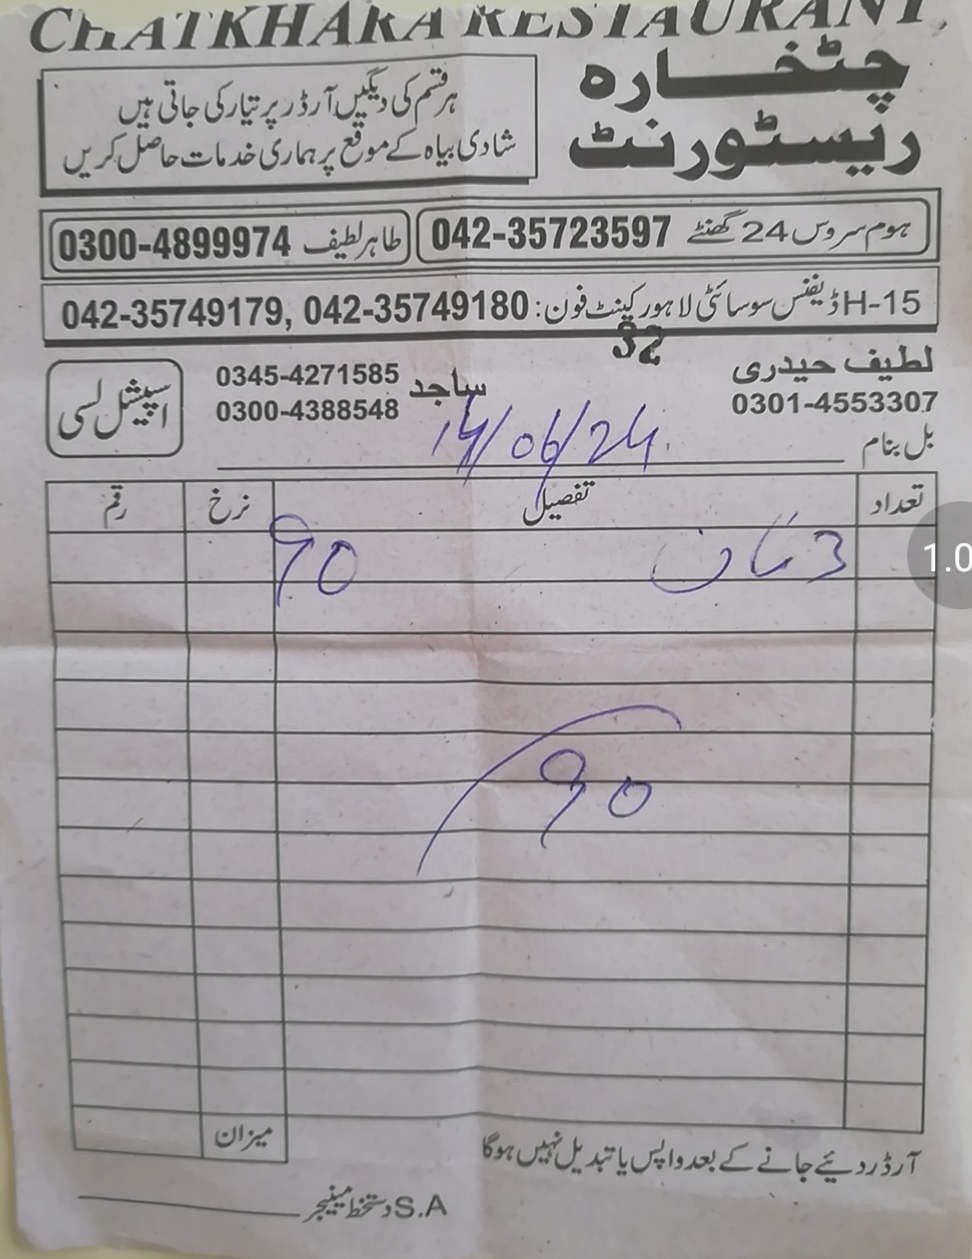 CHATKHARA RESTAURANT,
چٹخارہ
ریسٹورنٹ
ہر قسم کی دیگیں آرڈر پر تیار کی جاتی ہیں
شادی بیاہ کے موقع پر ہماری خدمات حاصل کریں
ہوم سروس 24 گھنٹے 042-35723597
طاہر لطیف 0300-4899974
H-15 ڈیفنس سوسائٹی لاہور کینٹ فون: 042-35749180 ,042-35749179
32
لطیف حیدری
0301-4553307
ساجد 0345-4271585
0300-4388548
اسپیشل لسی
بل بنام 14/06/24
تعداد تفصیل نرخ رقم
3 نان 90
90
میزان
آرڈر دیئے جانے کے بعد واپس یا تبدیل نہیں ہوگا
S.A دستخط مینیجر
1.0